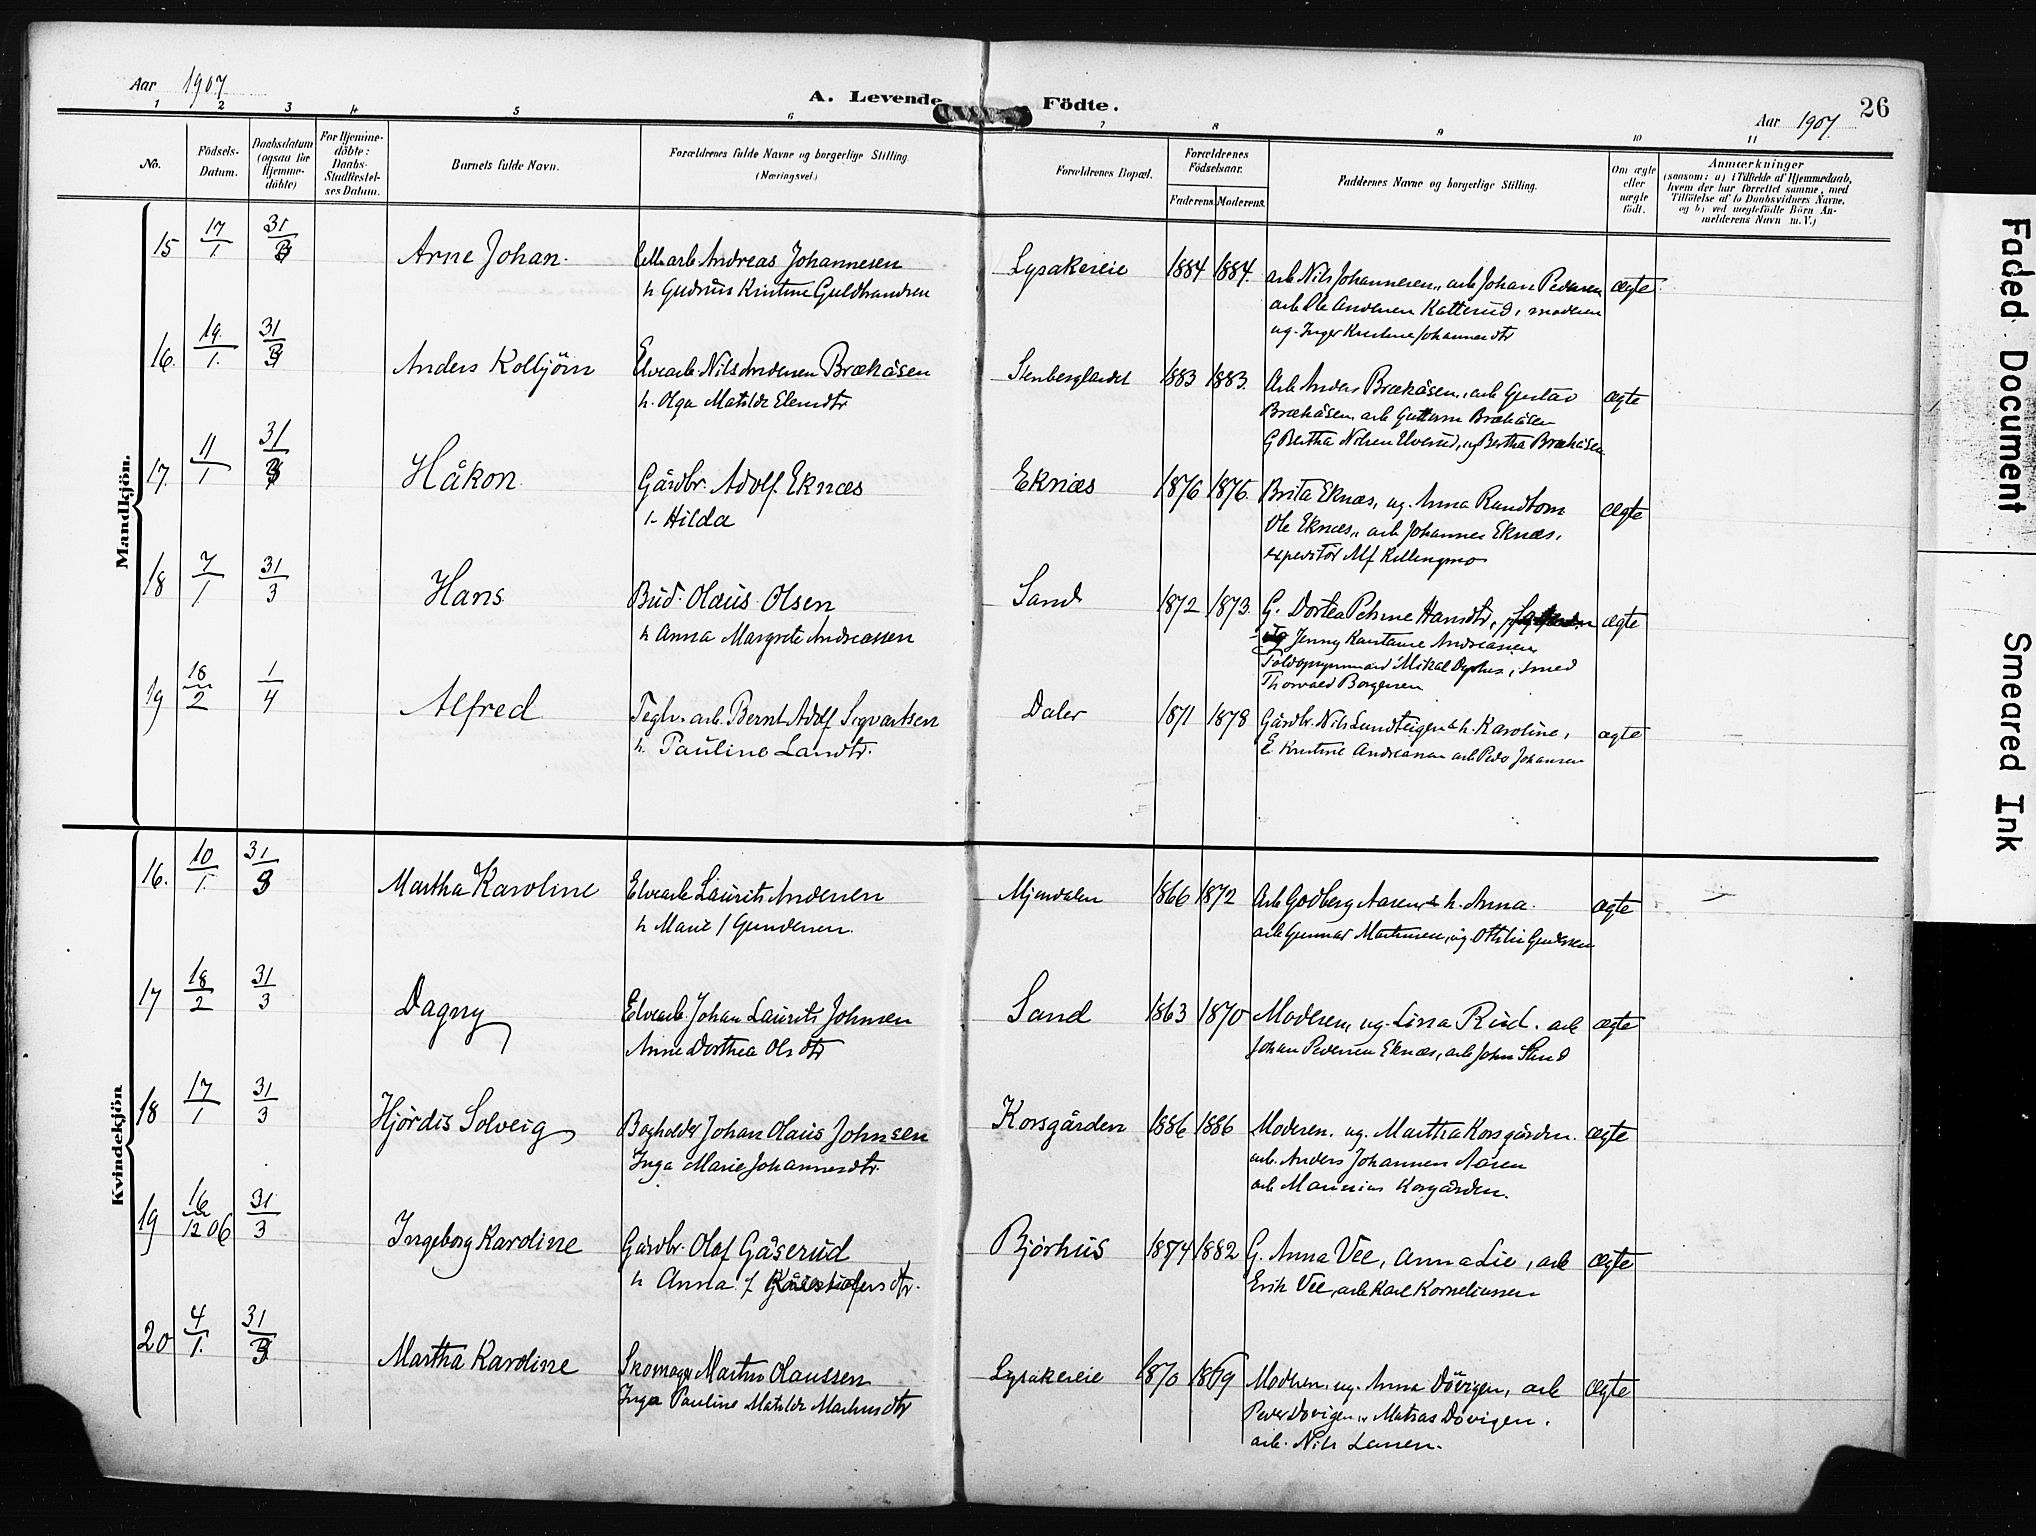 Aar 1907
A. Levende Födte.
Aar 1907.
26
1 2 3 4 5 6 7 8 9 10 11
No.
Födsels-Datum.
Daabsdatum (ogsaa for Hjemme-döbte)
For Hjemme-döbte: Daabs-Stadfæstel-ses Datum.
Barnets fulde Navn.
Forældrenes fulde Navne og borgerlige Stilling.
(Næringsvei.)
Forældrenes Bopæl.
Forældrenes Födselsaar.
Faderens. Moderens.
Faddernes Navne og borgerlige Stilling.
Om ægte eller uægte födt.
Anmærkninger
(saasom: a) i Tilfælde af Hjemmedaab,
hvem der har forrettet samme, med
Tilföielse af to Daabsvidners Navne,
og b) ved uægtefödte Börn An-
melderens Navn m. V.)
Mandkjön.
15 17/1 31/3 Arne Johan. Cellarb Andreas Johannesen Lysakereie 1884 1884. arb Nils Johannesen, arb Johan Pedersen ægte
h Gudrun Kristine Guldbrandsen arb Ole Andersen Katterud, moderen
ug. Inger Kristine Johannesdtr
16. 19/1. 31/3 Anders Kolbjörn Elvearb Nils Andersen Brækåsen Stenberglandet 1883 1883. Arb Anders Brækåsen, arb Gustav ægte
h. Olga Matilde Elensdtr. Brækåsen, arb Guttorm Brækåsen
G Bertha Nilsen Elverud, ug Bertha Brækåsen
17. 11/1 31/3 Håkon. Gårdbr. Adolf Eknæs Eknæs 1876 1876. Brita Eknæs, ug. Anna Randtom ægte
h Hilda Ole Eknæs, arb Johannes Eknæs,
expeditör Alf Killingmo
18 7/1. 31/3 Hans Bud. Olaus Olsen Sand 1872 1873. G. Dortea Petrine Hansdtr, ægte
h Anna Margrete Andreassen ug Jenny Konstanse Andreassen
Mikal Dyrhus, smed
Thorvald Borgersen
19 18/2 1/4 Alfred Teglv. arb. Bernt Adolf Sigvartsen Daler 1871 1878 Gårdbr. Nils Lundteigen & h. Karoline, ægte
h. Pauline Larsdtr. E Kristine Andreassen arb Peder Johansen
Kvindekjön
16. 10/1. 31/3 Martha Karoline Elvearb Laurits Andersen Mjøndalen 1866 1872 Arb Godberg Aasen & h. Anna. ægte
h Marie f Gundersen. arb Gunnar Martinsen, ug. Ottilie Gundersen
17 18/2 31/3 Dagny Elvearb. Johan Laurits Johnsen Sand 1863 1870 Moderen, ug. Lina Rud. arb ægte
Anne Dorthea Olsdtr Johan Pedersen Eknæs, arb John Sand
18 17/1 31/3 Hjördis Solveig Bogholder Johan Olaus Johnsen Korsgården 1886 1886 Moderen. ug. Martha Korsgården. ægte
Inga Marie Johannesdtr. arb. Anders Johannesen Aasen
arb Marinius Korsgården.
19 16/12 06 31/3 Ingeborg Karoline Gårdbr. Olaf Gåserud Bjørhus 1874 1882 G. Anna Vee, Anna Lie, arb ægte
h Anna f Kristofersdtr. Erik Vee, arb Karl Korneliussen
20 4/1. 31/3 Martha Karoline Skomager Martin Olaussen Lysakereie 1870 1869 Moderen. ug. Anna Dövigen, arb ægte
Inga Pauline Matilde Markusdtr Peder Dövigen, Matias Dövigen.
arb. Nils Larsen.
Faded Document
Smeared Ink